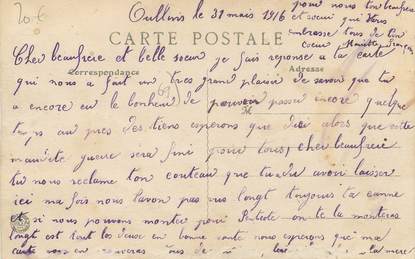 20 €
Oullins le 31 mais 1916
pour nous ton beaufrere
et soeur qui vous
embrasse tous de bon
coeur
CARTE POSTALE
Correspondance
Adresse
Cher beaufrere et belle soeur je fais reponse a ta carte
qui nous a fait un tres grand plaisir de savoir que tu
a encore eu le bonheur de pouvoir passer encore quelque
69
temps au pres des tiens esperons que dici alors que cette
maudite guerre sera fini pour tous, cher beaufrere
tu nous reclame ton couteau que tu dit avoir laisser
ici ma fois nous lavon pas vus longt toujours ta canne
et si nous pouvons monter pour on te la montera
longt est tout les deux en bonne sante nous esperons que ma
carte vous en de la mere